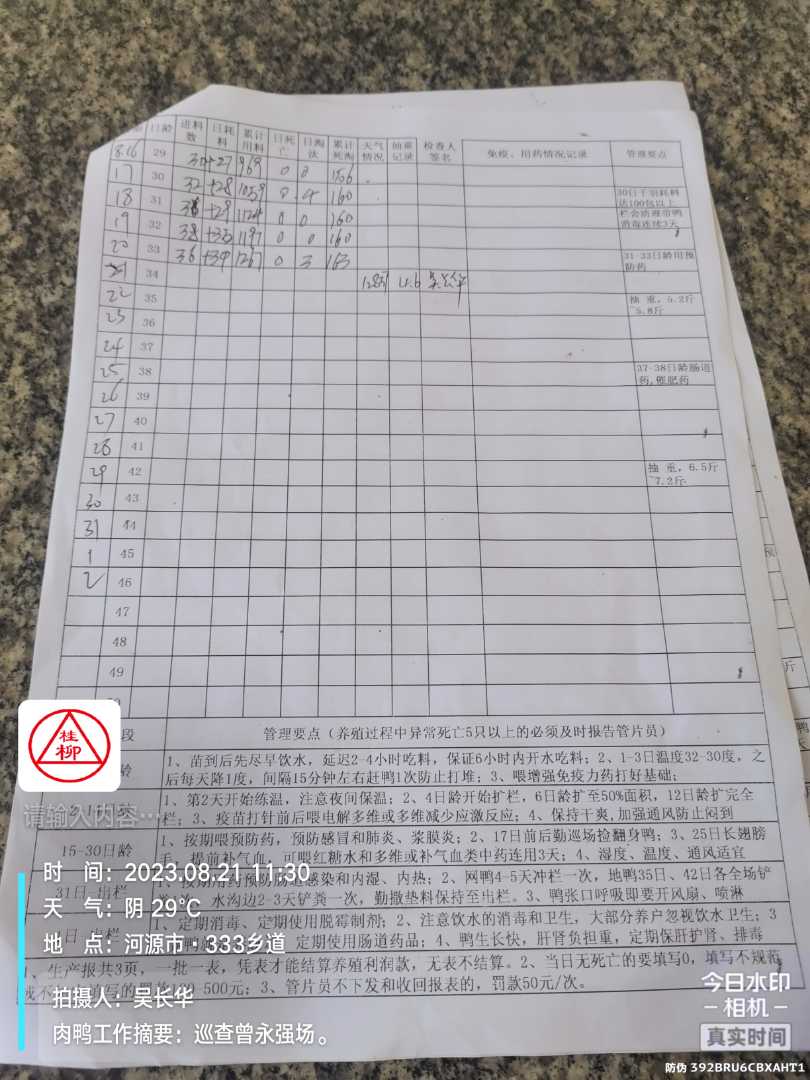 日龄 进料数 日耗料 累计用料 日死亡 日淘汰 累计死淘 天气情况 抽重记录 检查人签名 免疫、用药情况记录 管理要点
8.16 29 969 0 0 156
17 30 32 +28 0 4 160 30日于羽耗料达100包以上
18 31 +29 1124 0 0 160 栏舍清理带鸭消毒连续3天
19 32 38 1197 0 0 160
20 33 36 1267 0 3 163 31-33日龄用预防药
21 34 4.6
22 35 抽重,5.2斤~5.8斤
23 36
24 37
25 38 37-38日龄肠道药,催肥药
26 39
27 40
28 41
29 42 抽重,6.5斤~7.2斤
30 43
31 44
1 45
2 46
47
48
49
段 管理要点(养殖过程中异常死亡5只以上的必须及时报告管片员)
龄 1、苗到后先尽早饮水,延迟2-4小时吃料,保证6小时内开水吃料;2、1-3日温度32-30度,之
后每天降1度,间隔15分钟左右赶鸭1次防止打堆;3、喂增强免疫力药打好基础;
1、第2天开始练温,注意夜间保温;2、4日龄开始扩栏,6日龄扩至50%面积,12日龄扩完全
栏;3、疫苗打针前后喂电解多维或多维减少应激反应;4、保持干爽,加强通风防止闷到
15-30日龄 1、按期喂预防药,预防感冒和肺炎、浆膜炎;2、17日前后勤巡场捡翻身鸭;3、25日长翅膀
毛,提前补气血,可喂红糖水和多维或补气血类中药连用3天;4、湿度、温度、通风适宜
31日-出栏 1、按期用药预防肠道感染和内湿、内热;2、网鸭4-5天冲栏一次,地鸭35日、42日各全场铲
水沟边2-3天铲粪一次,勤撒垫料保持至出栏。3、鸭张口呼吸即要开风扇、喷淋
1日-出栏 1、定期消毒、定期使用脱霉制剂;2、注意饮水的消毒和卫生,大部分养户忽视饮水卫生;3
定期使用肠道药品;4、鸭生长快,肝肾负担重,定期保肝护肾、排毒
1、生产报共3页,一批一表,凭表才能结算养殖利润款,无表不结算。2、当日无死亡的要填写0,填写不规范
100-500元;3、管片员不下发和收回报表的,罚款50元/次。
桂柳
请输入内容…
时 间:2023.08.21 11:30
天 气:阴 29℃
地 点:河源市·333乡道
拍摄人:吴长华
肉鸭工作摘要:巡查曾永强场。
今日水印
-相机-
真实时间
防伪 392BRU6CBXAHT1